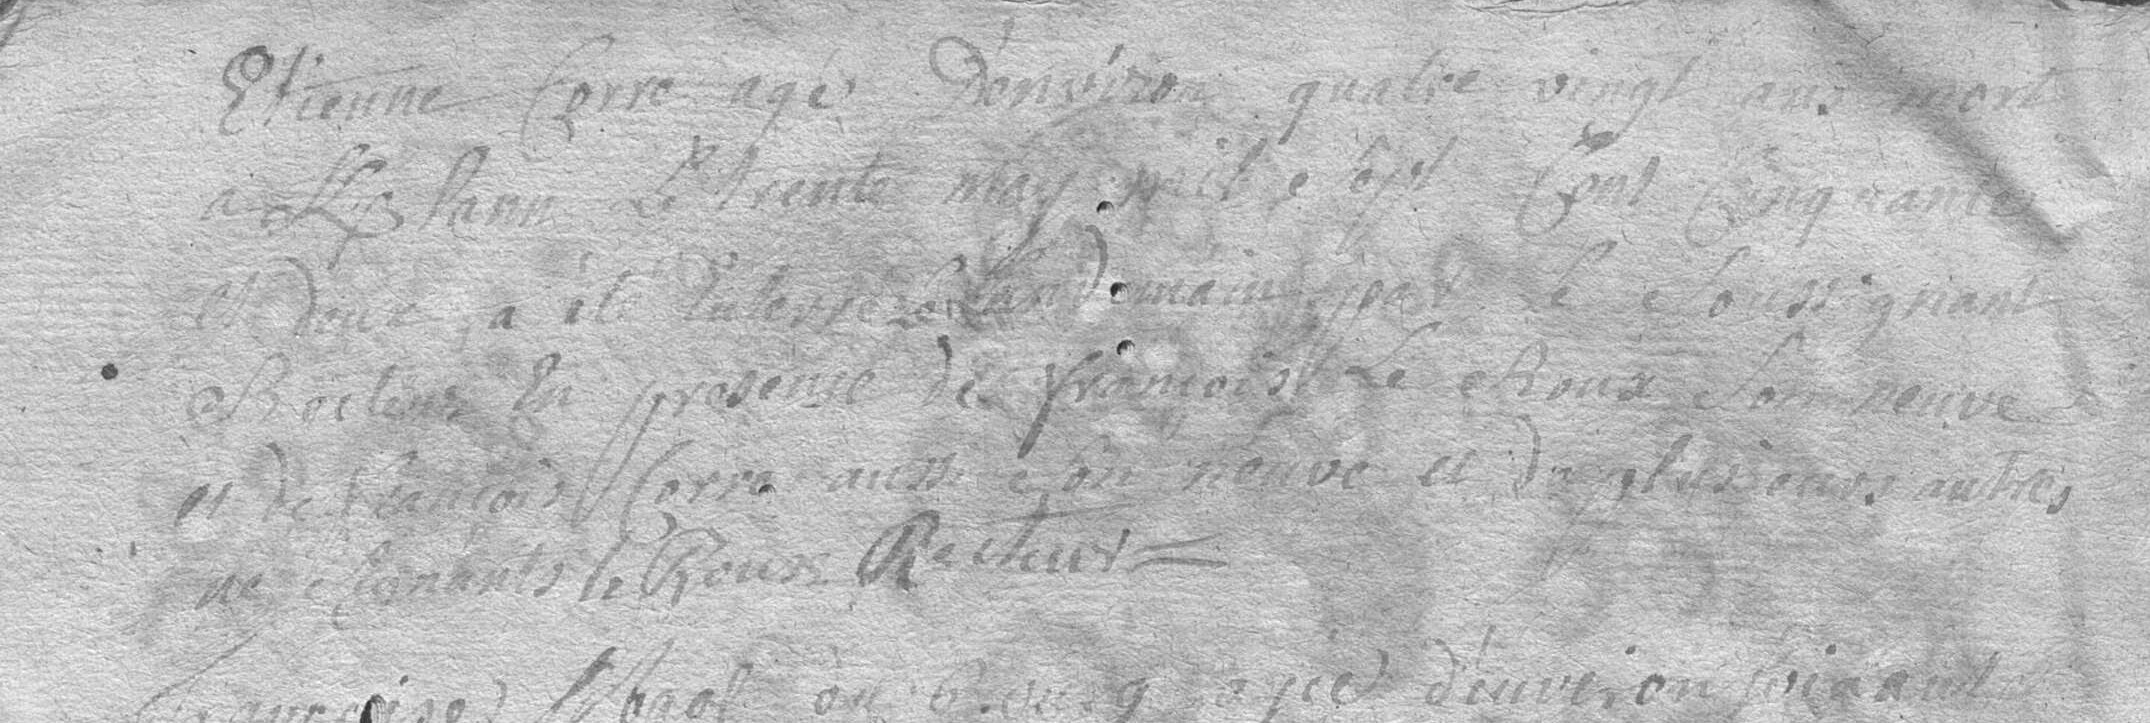 Etienne Corre agé D'environ quatre vingt ans mort
a Lann Le trente may mil sept Cent Cinquante
et Deux a été Enterré Le Landemain par Le Soussignant
Recteur En presence de françois Le Roux Son neuve
et de françois Corre aussi son neuve et de plusieurs autres
ne signants le Roux Recteur
françoise ou Bourg agée d'environ soixante